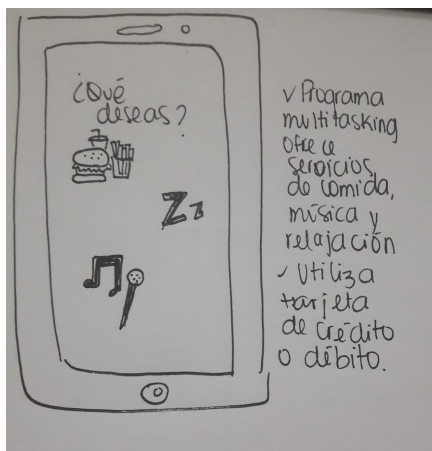 ¿Qué
deseas?
Zz
✓ Programa
multitasking
ofrece
servicios
de comida,
música y
relajación
✓ Utiliza
tarjeta
de crédito
o débito.